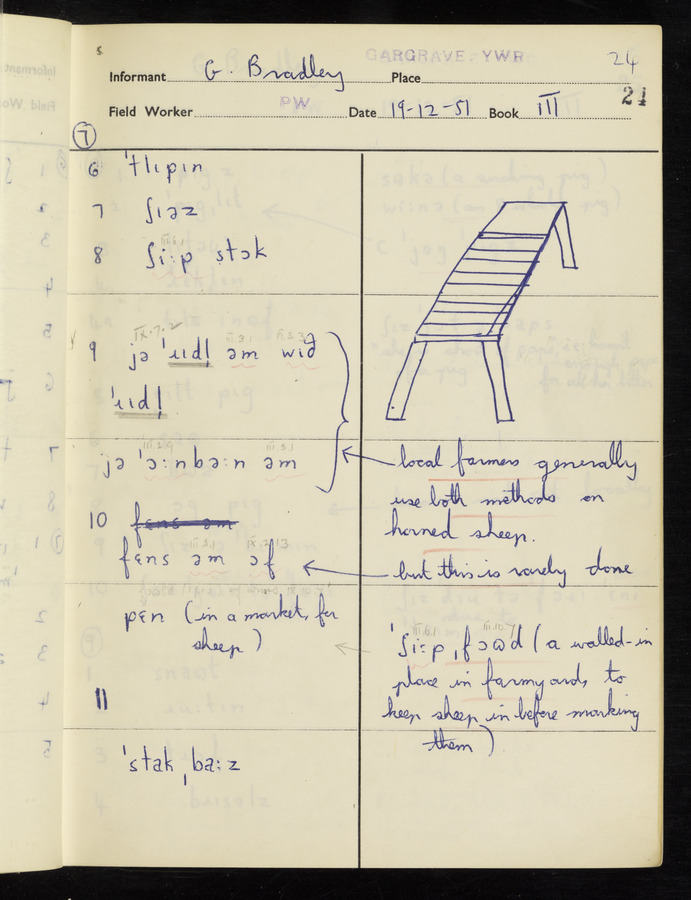 GARGRAVE. YWR
24
Informant G. Bradley Place
21
Field Worker PW Date 19-12-51 Book III
7
6 'tlɪpɪn
7 ʃɪəz
8 ʃiːp stɔk
9 jə 'ɹɪdl̩ əm wið
'ɹɪdl̩
jə 'ɔːnbəːn əm
local farmers generally
use both methods on
horned sheep.
10 fɛns əm
fɛns əm ɔf
but this is rarely done
pɛn (in a market, for
sheep)
'ʃiːpˌfɔəd (a walled-in
place in farmyards to
keep sheep in before marking
them)
11
'stakˌbaːz